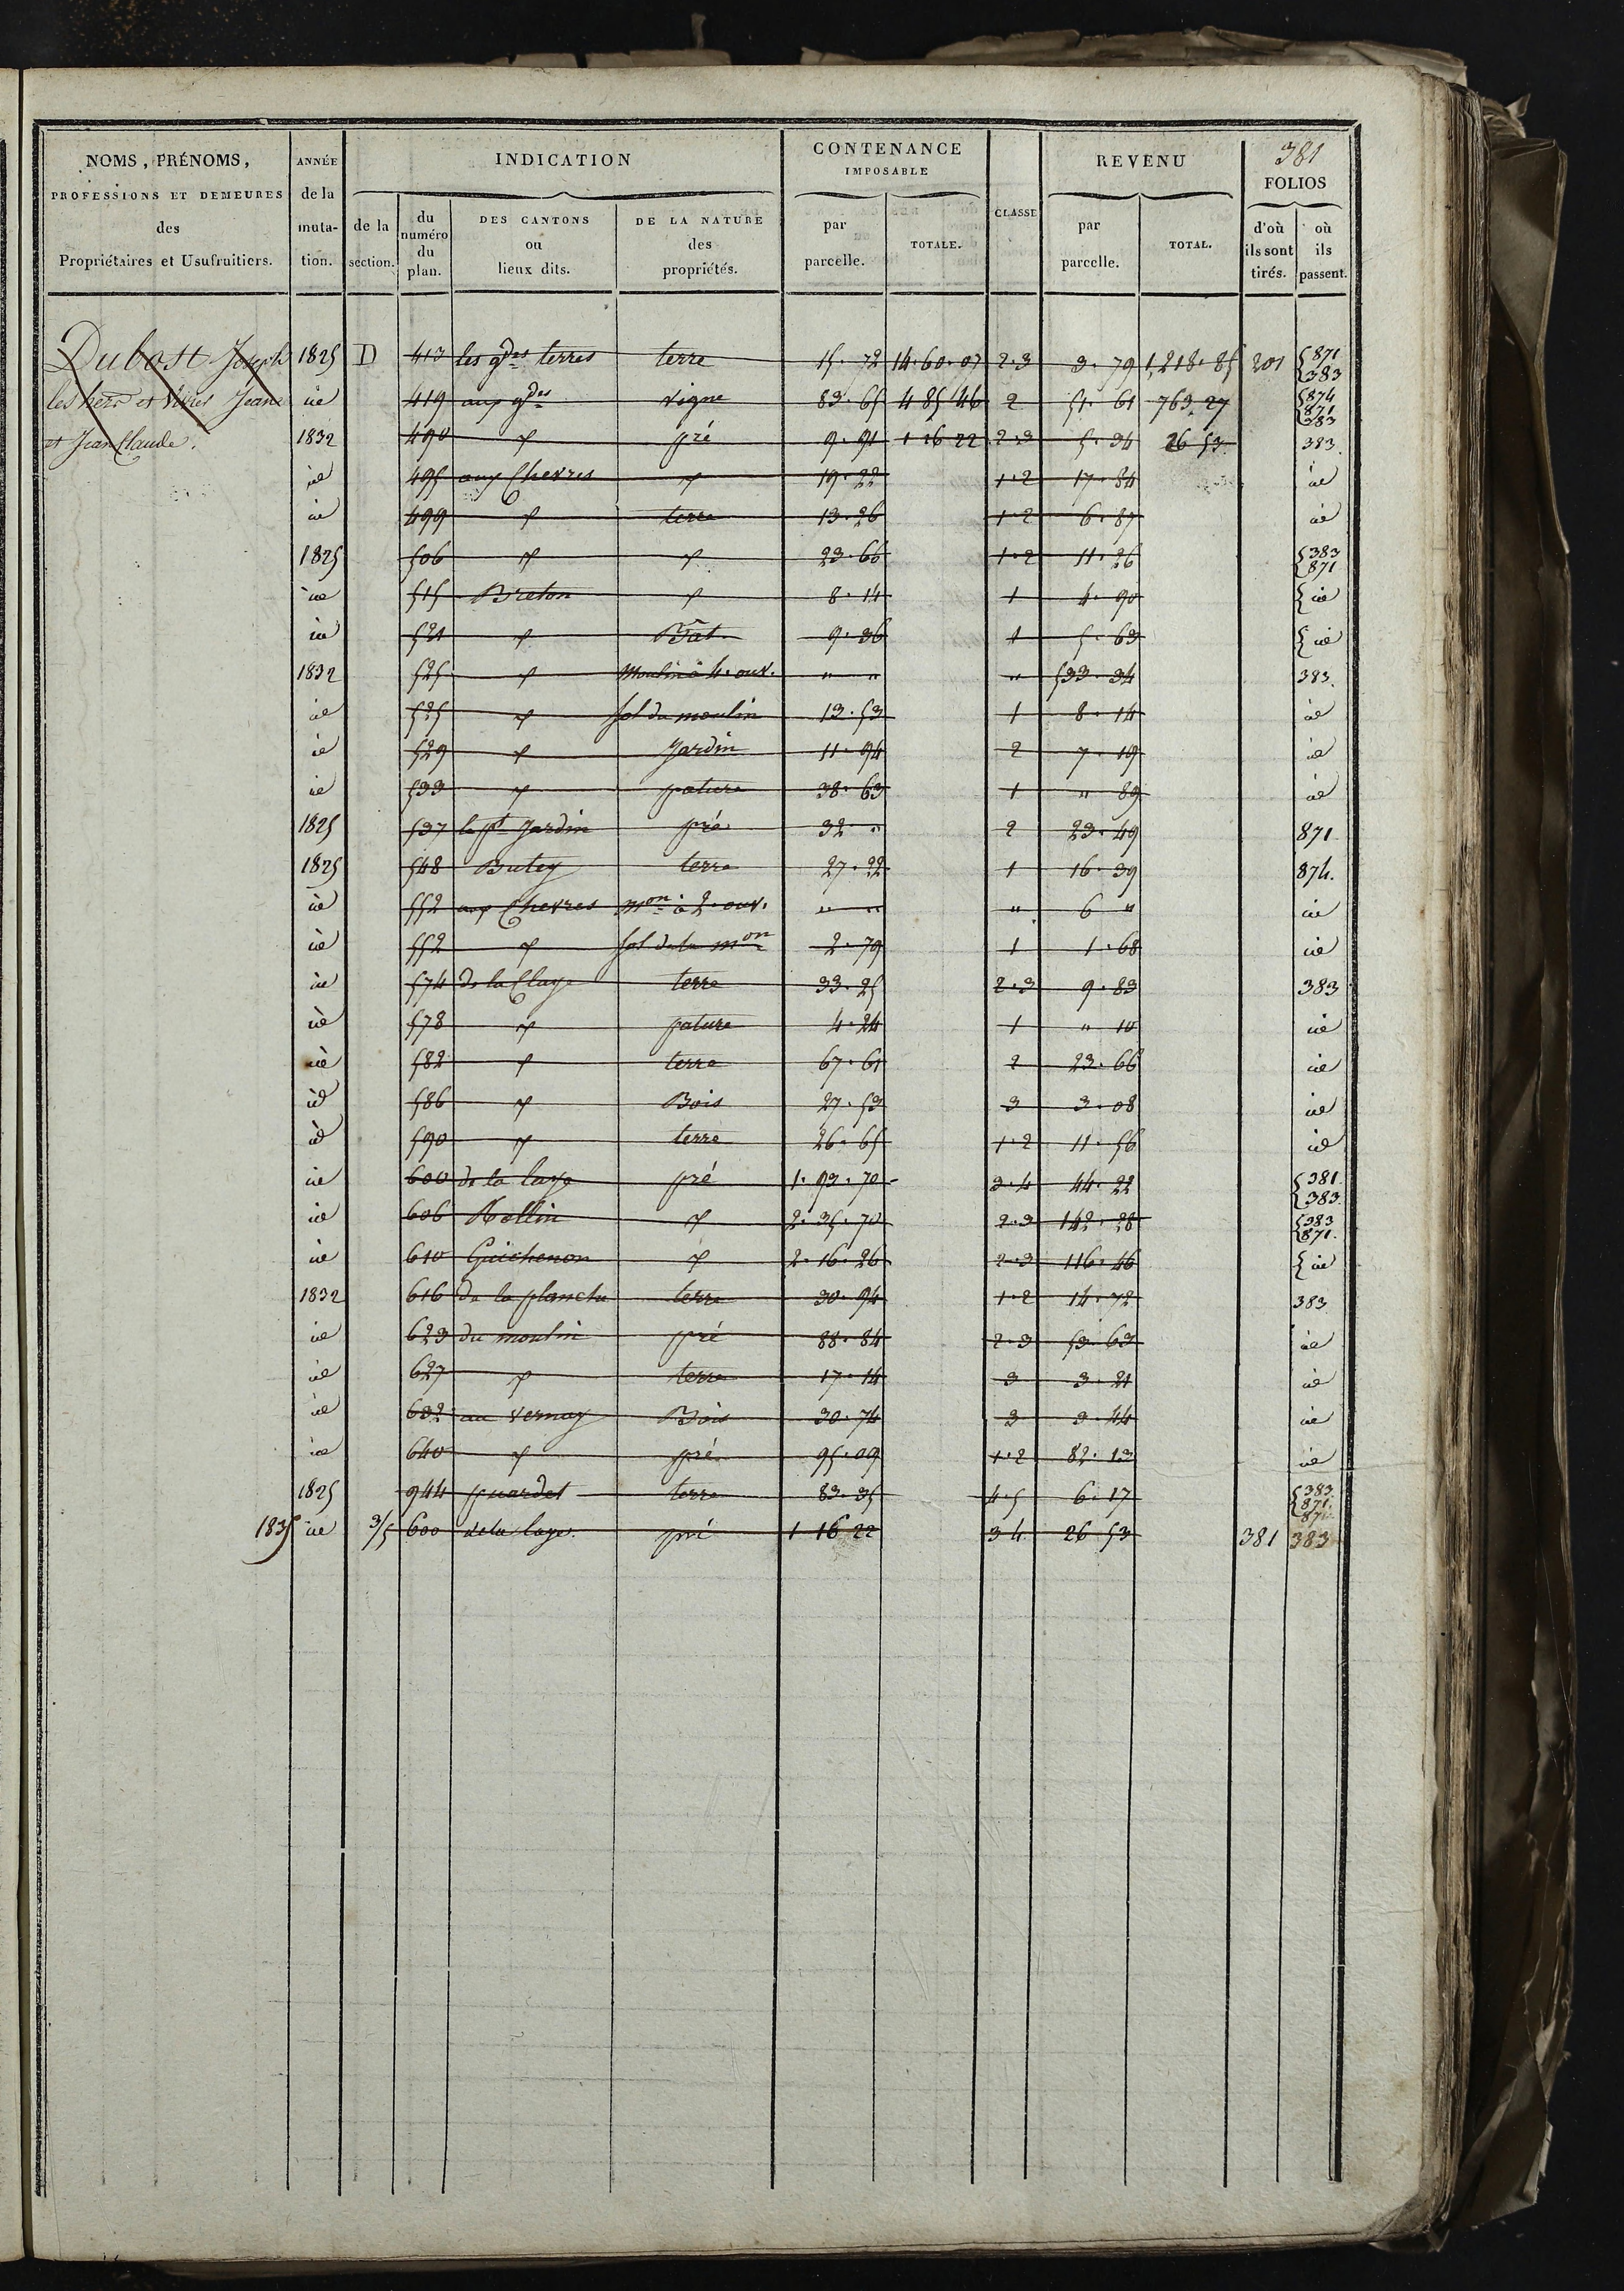 381
NOMS, PRÉNOMS, PROFESSIONS ET DEMEURES des Propriétaires et Usufruitiers.
ANNÉE de la muta-tion.
INDICATION
de la section.
du numéro du plan.
DES CANTONS ou lieux dits.
DE LA NATURE des propriétés.
CONTENANCE IMPOSABLE
par parcelle.
TOTALE.
CLASSE
REVENU
par parcelle.
TOTAL.
FOLIOS
d'où ils sont tirés.
où ils passent.
Dubost Joseph 1825 D 413 les gdes terres terre 15. 72 14. 60. 07 2.3 3. 79 1,218. 85 301 871 383
les hers et Jeane id 419 aux gdes vigne 83. 65 4 85 46 2 51. 61 763. 27 874 871 383
et Jean Claude. 1832 490 " pré 9. 91 1 16 22 2.3 5. 34 26 53 383.
id 495 aux Chevres " 19. 22 1.2 17. 84 id
id 499 " terre 13. 26 1.2 6. 87 id
1825 506 " " 23. 66 1.2 11. 26 383 871
id 515 Breton " 8. 14 1 4. 90 id
id 521 " Bât. 9. 36 1 5. 63 id
1832 525 " Moulin à 4. ouv. " " " 533. 34 383.
id 525 " sol du moulin 13. 53 1 8. 14 id
id 529 " Jardin 11. 94 2 7. 19 id
id 533 " pature 38. 63 1 " 89 id
1825 537 le pt Jardin pré 32. " 2 23. 49 871
1825 548 Butey terre 27. 22 1 16. 39 874.
id 552 aux Chevres mon à 2. ouv. " " " 6 " id
id 552 " sol de la mon 2. 79 1 1. 68 id
id 574 de la Claye terre 33. 25 2.3 9. 83 383
id 578 " pature 4. 24 1 " 10 id
id 582 " terre 67. 61 2 23. 66 id
id 586 " Bois 27. 53 3 3. 08 id
id 590 " terre 26. 65 1.2 11. 56 id
id 600 de la laye pré 1. 93. 70 3.4 44. 22 381 383.
id 606 Rollin " 2. 35. 70 2.3 142. 28 383 871.
id 610 Guichenon " 2. 16. 26 2.3 116. 46 id
1832 616 de la planche terre 30. 94 1.2 14. 72 383
id 623 du moulin pré 88. 84 2.3 53. 63 id
id 627 " terre 17. 14 3 3. 21 id
id 632 au Vernay Bois 30. 74 3 3. 44 id
id 640 " pré 95. 09 1.2 82. 13 id
1825 944 terre 83. 35 4.5 6. 17 383. 871.
1835 id 3/5 600 de la laye. pré 1 16 22 3 4 26 53 381 383